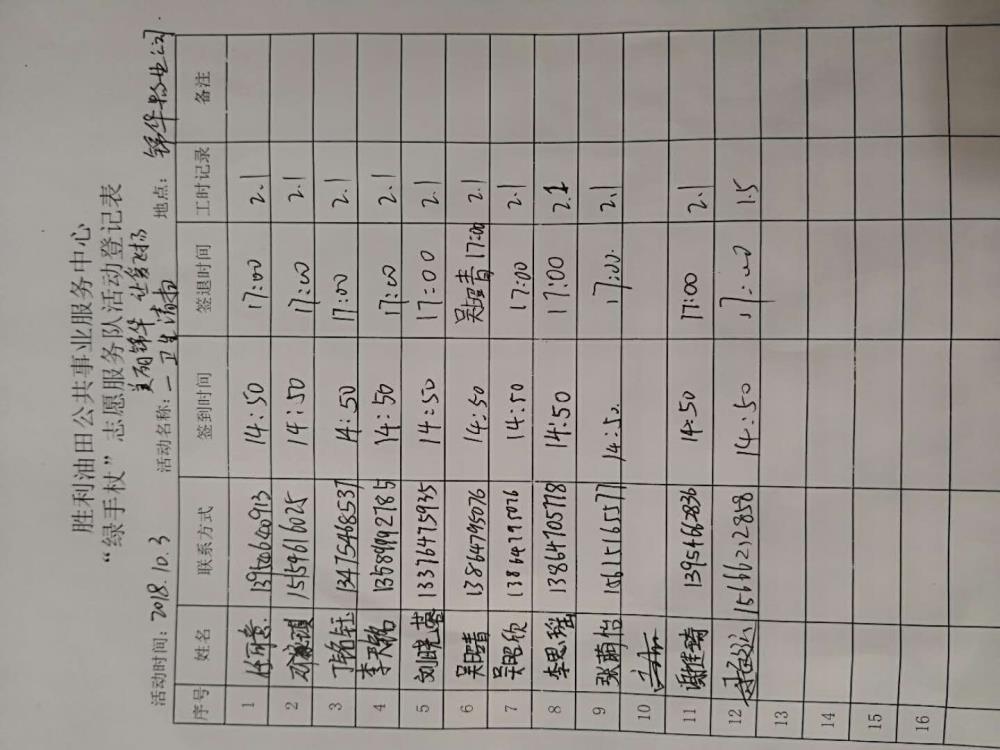 胜利油田公共事业服务中心
“绿手杖”志愿服务队活动登记表
活动时间：2018.10.3 活动名称：美丽锦华 让我 一卫生清扫 地点：锦华物业公司
序号 姓名 联系方式 签到时间 签退时间 工时记录 备注
1 14:50 17:00 2.1
2 14:50 17:00 2.1
3 丁铭钰 13475468537 14:50 17:00 2.1
4 14:50 17:00 2.1
5 刘晓蕾 13376475935 14:50 17:00 2.1
6 13864795076 14:50 17:00 2.1
7 吴昭欣 14:50 17:00 2.1
8 李思瑶 13864705778 14:50 17:00 2.1
9 张萌怡 15615165577 14:50. 17:00. 2.1
10
11 谢佳琦 13954662836 14:50 17:00 2.1
12 15666212858 14:50 17:00 1.5
13
14
15
16